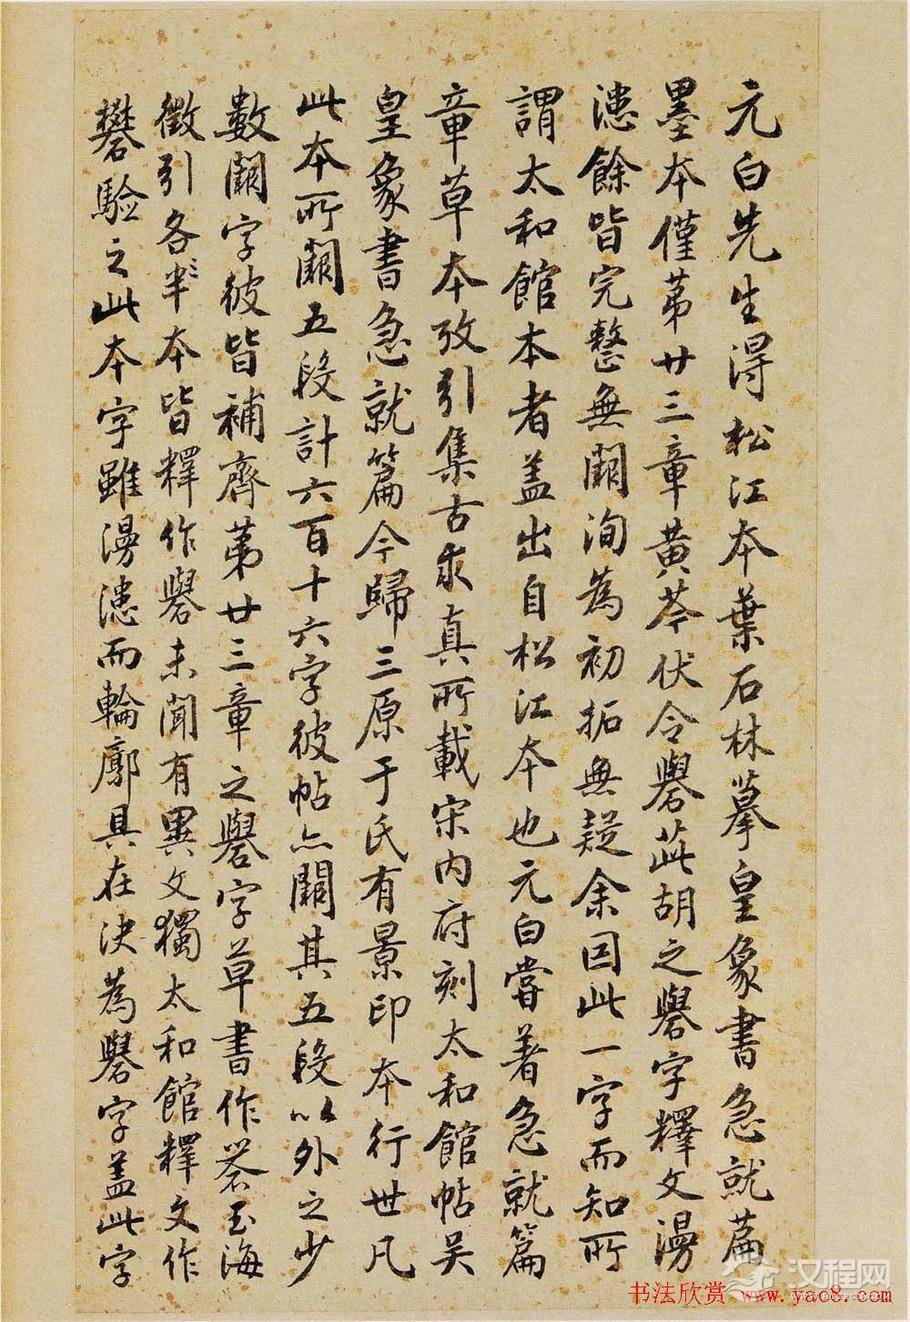 元白先生得松江本葉石林摹皇象書急就篇
墨本僅苐廿三章黄芩伏令礜茈胡之礜字釋文漫
漶餘皆完整無闕洵為初拓無疑余因此一字而知所
謂太和館本者盖出自松江本也元白嘗著急就篇
章草本攷引集古求真所載宋内府刻太和館帖吴
皇象書急就篇今歸三原于氏有景印本行世凡
此本所闕五段計六百十六字彼帖亦闕其五段以外之少
數闕字彼皆補齊苐廿三章之礜字草書作 玉海
徵引各半本皆釋作礜未聞有異文獨太和館釋文作
礬驗之此本字雖漫漶而輪廓具在決為礜字盖此字
汉程网
书法欣赏 www.yac8.com